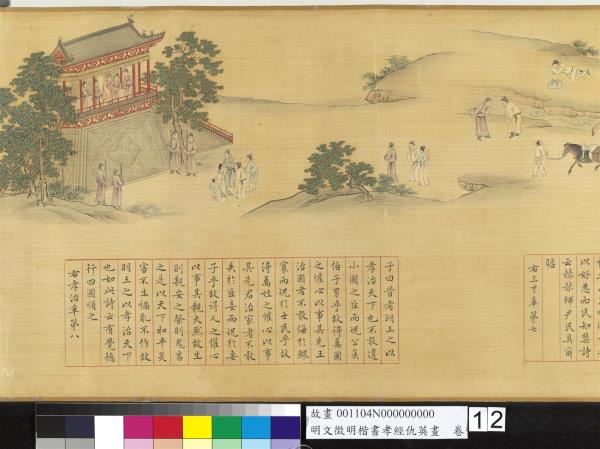 以好惡而民知禁詩
云赫赫師尹民具爾
瞻
右三才章第七
子曰昔者明王之以
孝治天下也不敢遺
小國之臣而況公矦
伯子男乎故得萬國
之懽心以事其先王
治國者不敢侮於鰥
寡而況於士民乎故
得萬姓之懽心以事
其先君治家者不敢
失於臣妾而況於妻
子乎故得人之懽心
以事其親夫然故生
則親安之祭則鬼享
之是以天下和平災
害不生禍亂不作故
明王之以孝治天下
也如此詩云有覺德
行四國順之
右孝治章第八
故畫 001104N000000000
明文徵明楷書孝經仇英畫 卷
12